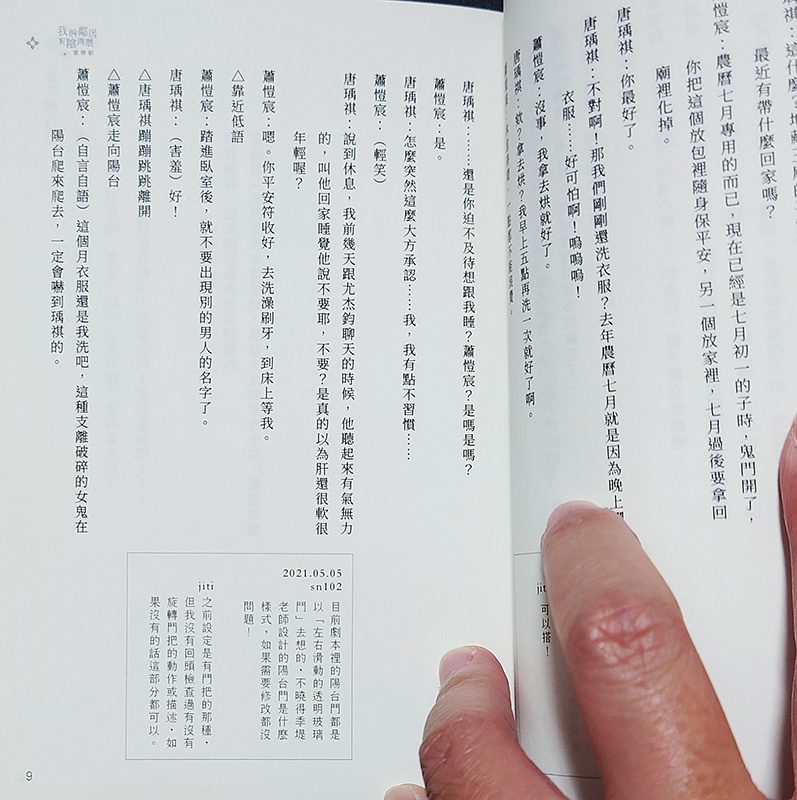 這什麼？地藏王
最近有帶什麼回家嗎？
愷宸：農曆七月專用的而已，現在已經是七月初一的子時，鬼門開了，
你把這個放包裡隨身保平安，另一個放家裡，七月過後要拿回
廟裡化掉。
唐瑀祺：你最好了。
唐瑀祺：不對啊！那我們剛剛還洗衣服？去年農曆七月就是因為晚上
衣服……好可怕啊！嗚嗚嗚！
蕭愷宸：沒事，我拿去烘就好了。
唐瑀祺：欸？拿去烘？我早上五點再洗一次就好了啊。
jiti
可以搭！
唐瑀祺：……還是你迫不及待想跟我睡？蕭愷宸？是嗎是嗎？
蕭愷宸：是。
唐瑀祺：怎麼突然這麼大方承認……我，我有點不習慣……
蕭愷宸：（輕笑）
唐瑀祺：說到休息，我前幾天跟尤杰鈞聊天的時候，他聽起來有氣無力
的，叫他回家睡覺他說不要耶，不要？是真的以為肝還很軟很
年輕喔？
蕭愷宸：嗯。你平安符收好，去洗澡刷牙，到床上等我。
△靠近低語
蕭愷宸：踏進臥室後，就不要出現別的男人的名字了。
唐瑀祺：（害羞）好！
△唐瑀祺蹦蹦跳跳離開
△蕭愷宸走向陽台
蕭愷宸：（自言自語）這個月衣服還是我洗吧，這種支離破碎的女鬼在
陽台爬來爬去，一定會嚇到瑀祺的。
2021.05.05
sn102
目前劇本裡的陽台門都是
以「左右滑動的透明玻璃
門」去想的，不曉得季堤
老師設計的陽台門是什麼
樣式，如果需要修改都沒
問題！
jiti
之前設定是有門把的那種，
但我沒有回頭檢查過有沒有
旋轉門把的動作或描述，如
果沒有的話這部分都可以。
我的鄰居
有陰陽眼
9